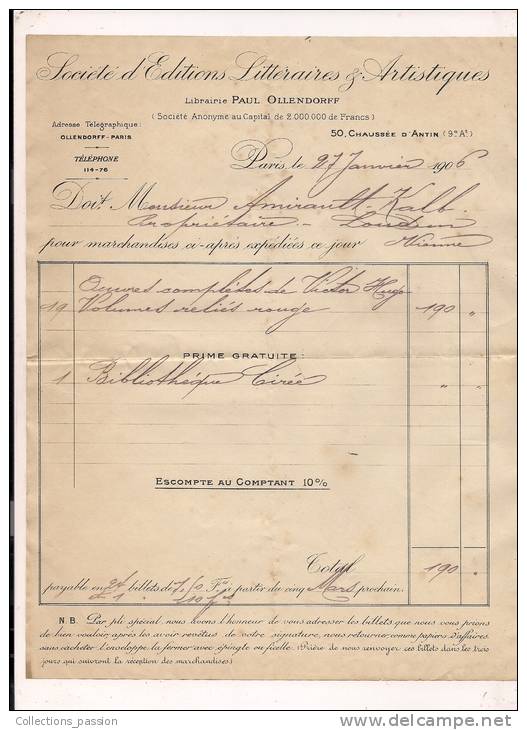 Société d'Editions Littéraires & Artistiques
Librairie PAUL OLLENDORFF
(Société Anonyme au Capital de 2.000.000 de Francs)
Adresse Télégraphique:
OLLENDORFF-PARIS
TÉLÉPHONE
114-76
50, CHAUSSÉE D'ANTIN (9e At)
Paris, le 27 Janvier 1906
Doit Monsieur Amirault-Kalb
Propriétaire - Loudun
pour marchandises ci-après expédiées ce jour Vienne
Œuvres complètes de Victor Hugo
19 Volumes reliés rouge 190 "
PRIME GRATUITE:
1 Bibliothèque Cirée " "
ESCOMPTE AU COMPTANT 10%
Total 190 "
payable en billets de Fcs à partir du cinq Mars prochain.
N.B. Par pli spécial nous avons l'honneur de vous adresser les billets que nous vous prions
de bien vouloir, après les avoir revêtus de votre signature, nous retourner, comme papiers d'affaires
sans cacheter l'enveloppe, la fermer avec épingle ou ficelle. (Prière de nous renvoyer ces billets dans les trois
jours qui suivront la réception des marchandises.)
Collections_passion
www.delcampe.net